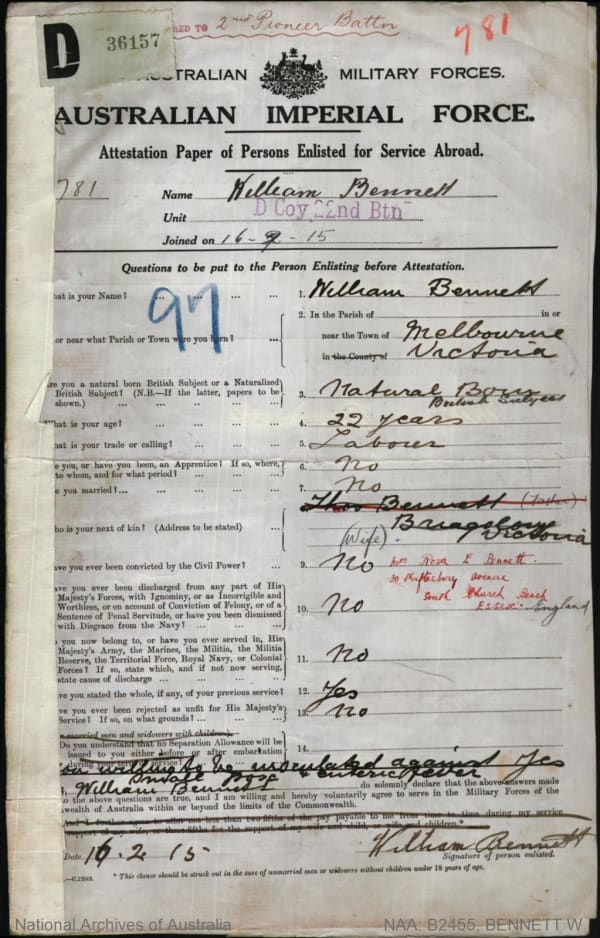 D 36157
RED TO 2nd Pioneer Battn
781
AUSTRALIAN MILITARY FORCES.
AUSTRALIAN IMPERIAL FORCE.
Attestation Paper of Persons Enlisted for Service Abroad.
781
Name William Bennett
Unit D Coy 22nd Btn
Joined on 16-2-15
Questions to be put to the Person Enlisting before Attestation.
hat is your Name? ... ... ... ... 1. William Bennett
97
2. In the Parish of in or
or near what Parish or Town were you born? ... near the Town of Melbourne
in the County of Victoria
re you a natural born British Subject or a Naturalized
British Subject? (N.B.—If the latter, papers to be
shown.) 3. Natural Born
British Subject
hat is your age? ... 4. 22 years
hat is your trade or calling? ... 5. Labourer
e you, or have you been, an Apprentice? If so, where,
to whom, and for what period? ... 6. No
e you married? ... 7. No
Thos Bennett (Father)
ho is your next of kin? (Address to be stated) ...
Victoria
(Wife)
Mrs Rosa E Bennett.
30 Shaftesbury avenue
South Church Beach
Essex. England
ave you ever been convicted by the Civil Power? ... 9. No
ave you ever been discharged from any part of His
Majesty's Forces, with Ignominy, or as Incorrigible and
Worthless, or on account of Conviction of Felony, or of a
Sentence of Penal Servitude, or have you been dismissed
with Disgrace from the Navy? ... 10. No
you now belong to, or have you ever served in, His
Majesty's Army, the Marines, the Militia, the Militia
Reserve, the Territorial Force, Royal Navy, or Colonial
Forces? If so, state which, and if not now serving,
state cause of discharge ... 11. No
ve you stated the whole, if any, of your previous service? 12. Yes
ve you ever been rejected as unfit for His Majesty's
Service? If so, on what grounds? ... 13. No
married men and widowers with children)
Do you understand that no Separation Allowance will be
issued to you either before or after embarkation
during your term of service? 14.
you willing to be inoculated against Yes
Small Pox & enteric fever
William Bennett do solemnly declare that the above answers made
to the above questions are true, and I am willing and hereby voluntarily agree to serve in the Military Forces of the
wealth of Australia within or beyond the limits of the Commonwealth.
And I further than two-fifths of the pay payable to me from time to time during my service
support of my wife, or three-fifths for the support of my wife and child, or wife and children.*
Date 16.2.15 William Bennett
Signature of person enlisted.
* This clause should be struck out in the case of unmarried men or widowers without children under 18 years of age.
National Archives of Australia NAA: B2455, BENNETT W